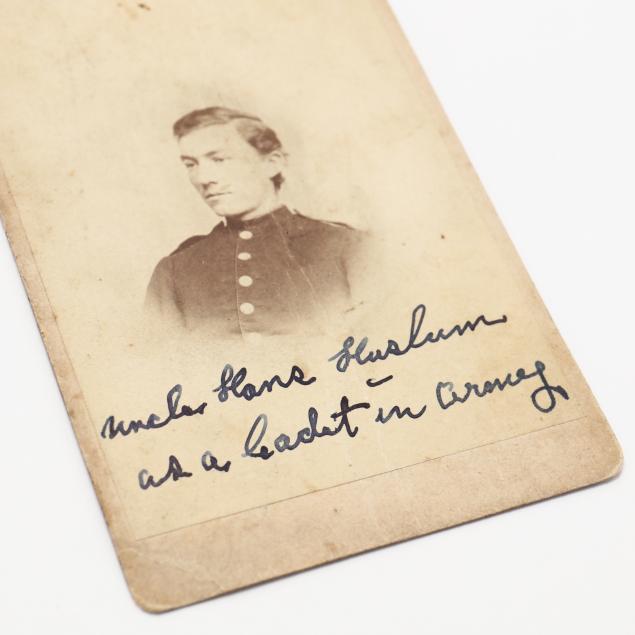 uncle Hans Huslum
as a Cadet in army